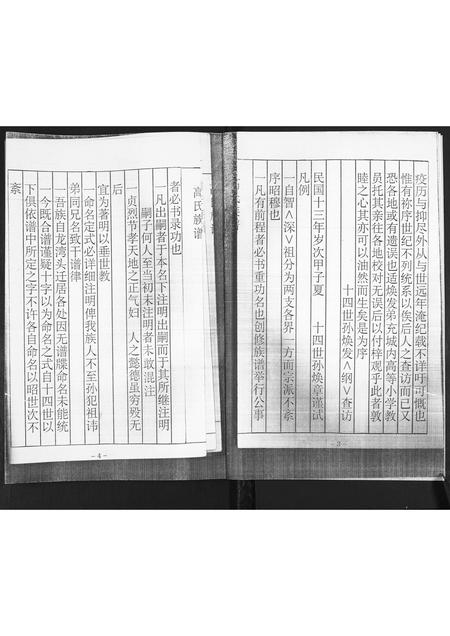 疫历与抑尽外从与世远年淹纪载不详吁可慨也
惟有祢序世纪不列统系以俟后人之查访而已又
恐各地或有遗误也适焕发弟充城内高等小学教
员托其亲往各地校对无误后以付梓观乎此者敦
睦之心其亦可以油然而生矣是为序
十四世孙焕发∧纲∨查访
民国十三年岁次甲子夏 十四世孙焕章谨试
凡例
一自智∧深∨祖分为两支各界一方而宗派不紊
序昭穆也
一凡有前程者必书重功名也创修族谱举行公事
-3-
高氏族谱
者必书录功也
一凡出嗣者于本名下注明出嗣而于其所继注明
嗣子何人至当初未注明者未敢混注
一贞烈节孝天地之正气妇 人之懿德虽穷殁无
后
宜为著明以垂世教
一命名定式必详细注明俾我族人不至孙犯祖讳
弟同兄名致干谱律
一吾族自龙湾头迁居各处因无谱牒命名未能统
一今既合谱谨疑十字以为命名之式自十四世以
下俱依谱中所定之字不许各自命名以昭世次不
紊
-4-